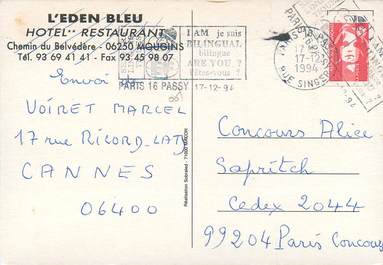 L'EDEN BLEU
HOTEL** RESTAURANT
Chemin du Belvédère - 06250 MOUGINS
Tél. 93 69 41 41 - Fax 93 45 98 07
I AM je suis
BILINGUAL
bilingue
ARE YOU?
l'êtes-vous?
PARIS 16 PASSY 17-12-94
17-12
1994
RUE SINGER
Envoi de
VOIRET MARCEL
17 rue RICORD-LATY
CANNES
06400
Concours Alice
Sapritch
Cedex 2044
99204 Paris Concours